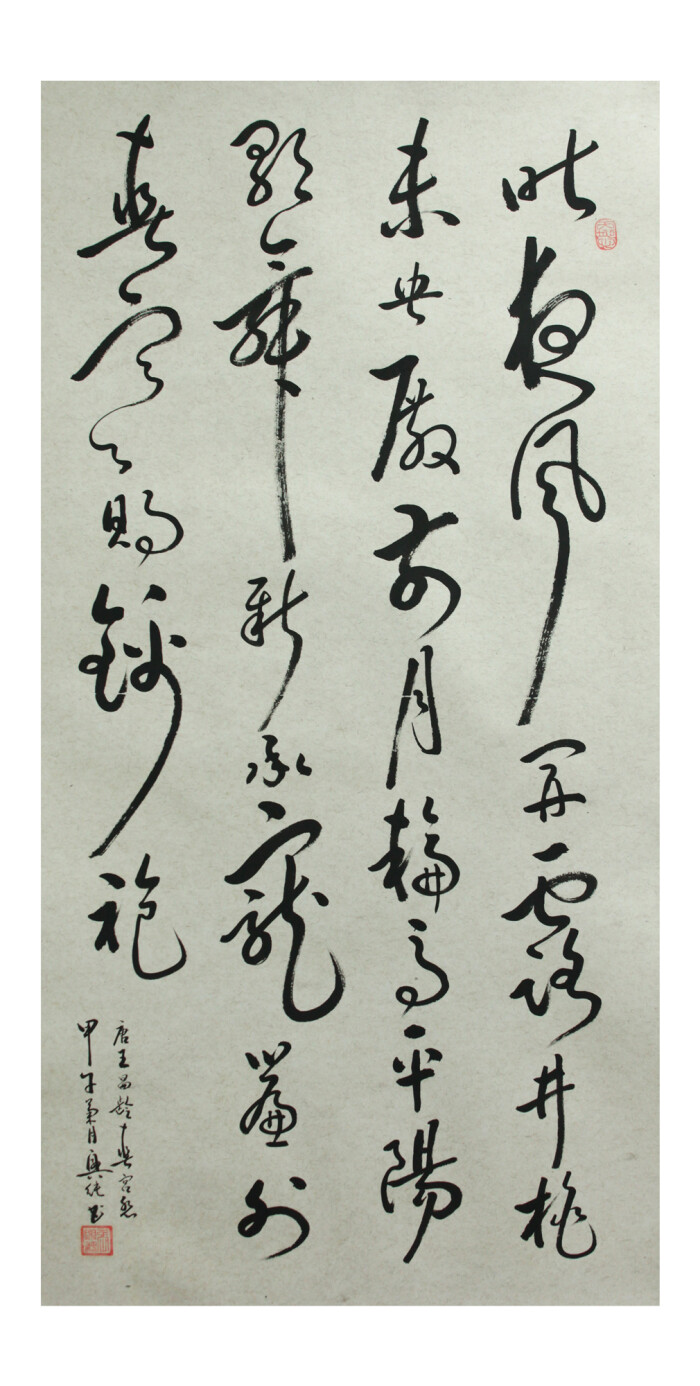 昨夜風開露井桃
未央殿前月輪高平陽
歌舞新承寵簾外
春寒賜錦袍
唐王昌齡春宮怨
甲子月書